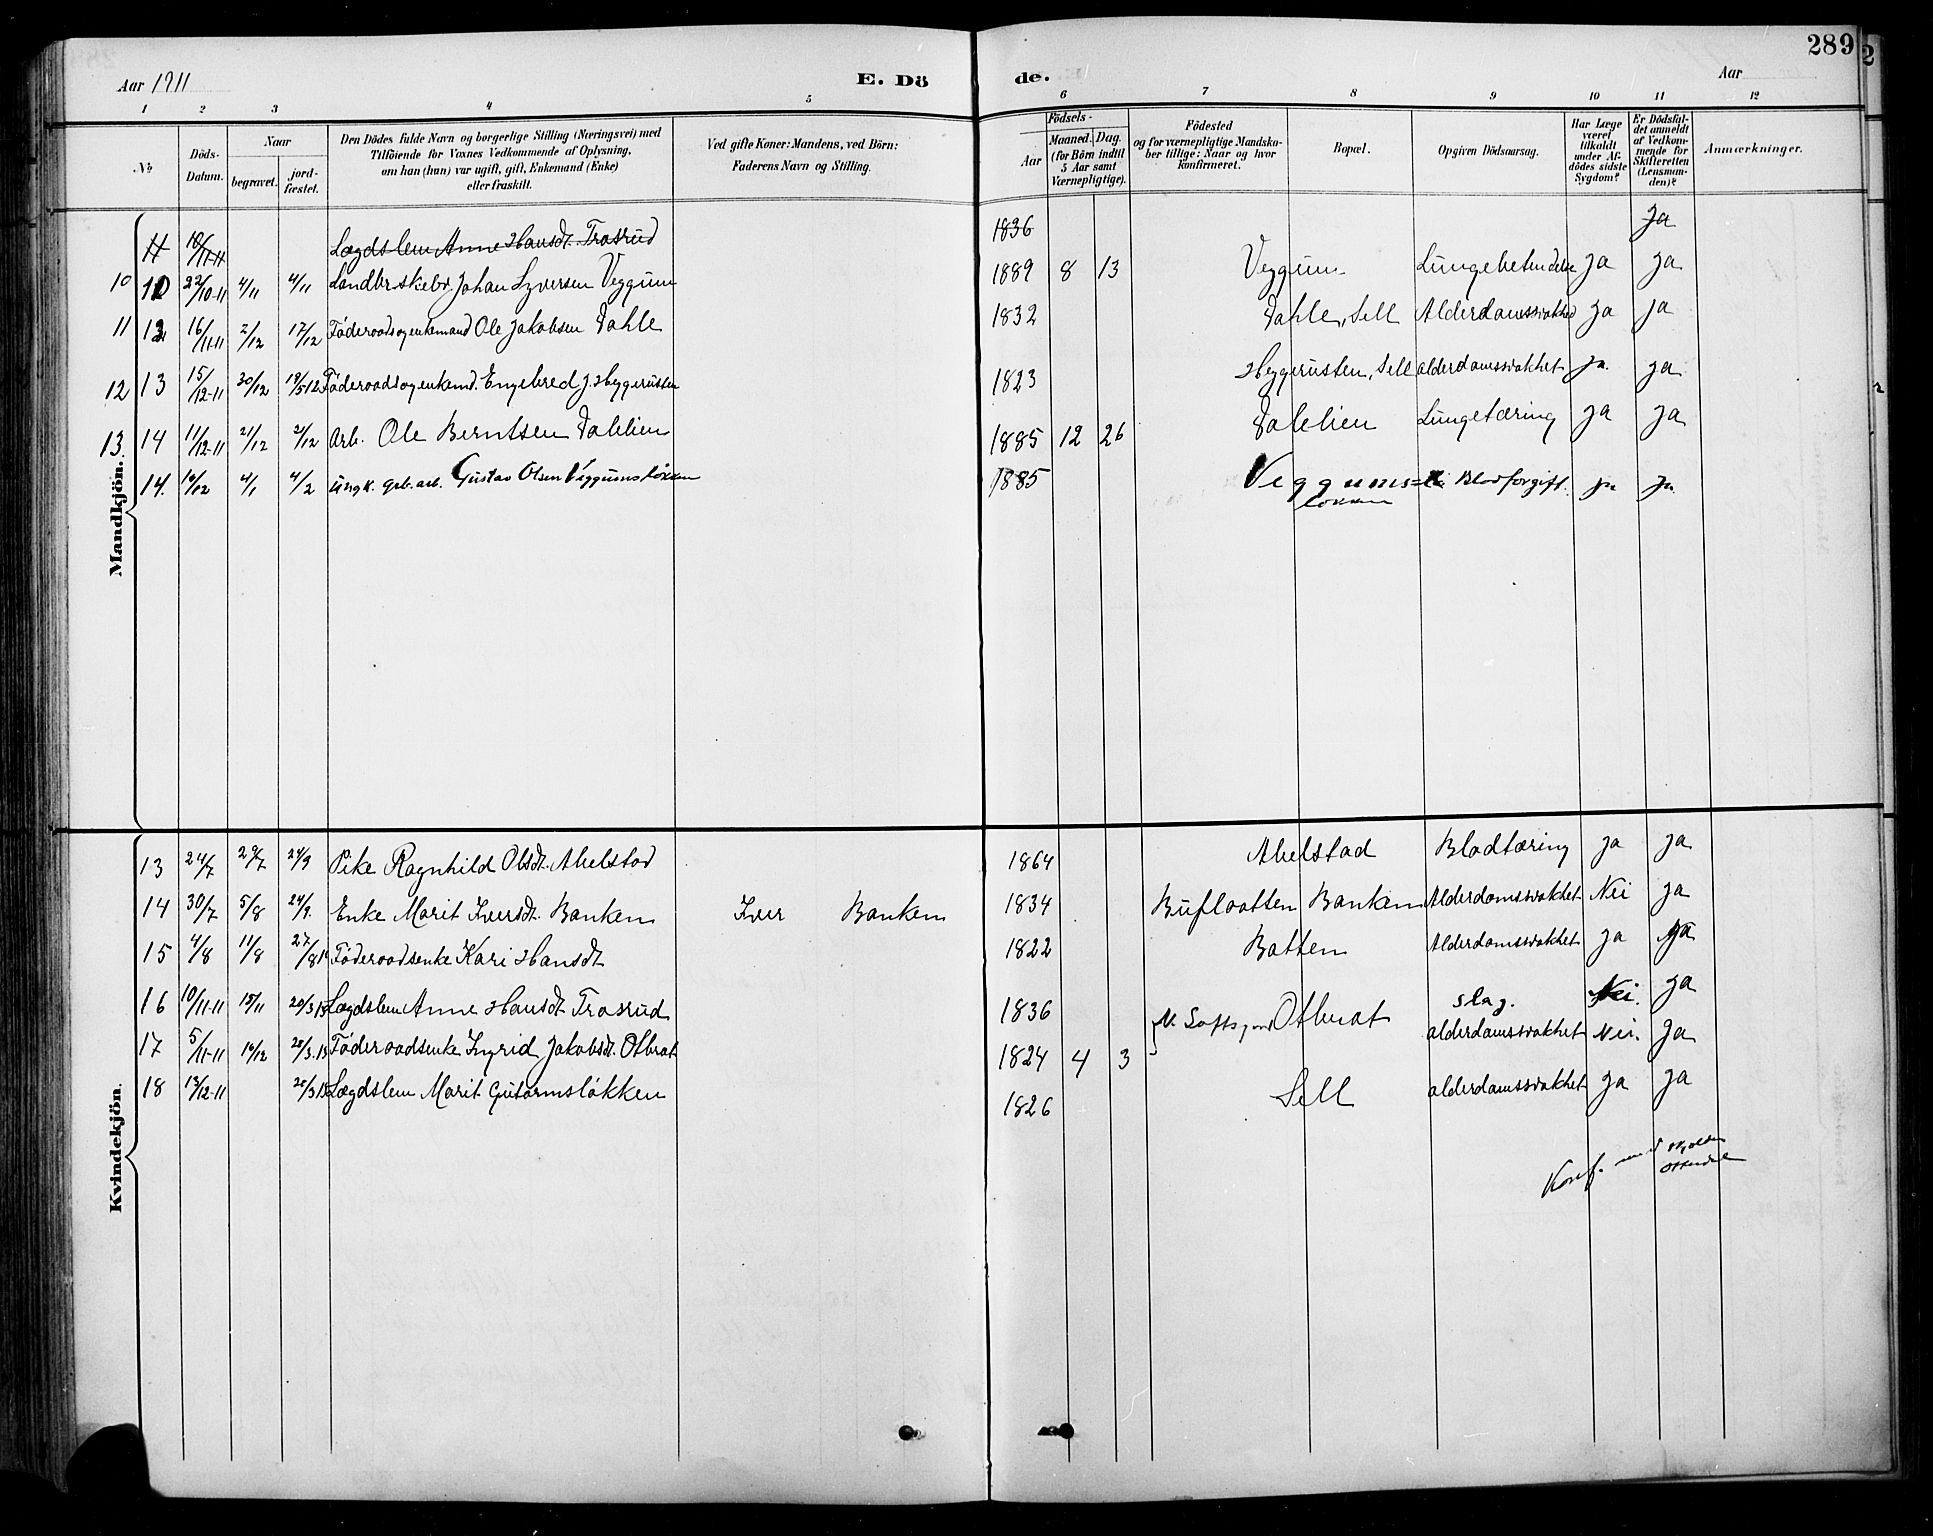 289
Aar 1911 E. Dö de. Aar
1 2 3 4 5 6 7 8 9 10 11 12
No
Döds-Datum.
Naar
begravet.
jord-fæstet.
Den Dödes fulde Navn og borgerlige Stilling (Næringsvei) med
Tilföiende for Voxnes Vedkommende af Oplysning,
om han (hun) var ugift, gift, Enkemand (Enke)
eller fraskilt.
Ved gifte Koner: Mandens, ved Börn:
Faderens Navn og Stilling.
Födsels-
Aar
Maaned. Dag.
(for Börn indtil
5 Aar samt
Værnepligtige).
Födested
og for værnepligtige Mandska-
ber tillige: Naar og hvor
konfirmeret.
Bopæl.
Opgiven Dödsaarsag.
Har Læge
været
tilkaldt
under Af-
dödes sidste
Sygdom?
Er Dödsfal-
det anmeldt
af Vedkom-
mende for
Skifteretten
(Lensman-
den)?
Anmærkninger.
Mandkjön.
11 10/11-11 Lægdslem Anne Hansdt. Trosrud 1836 Ja
10 22/10-11 4/11 4/11 Johan Syversen Veggum 1889 8 13 Veggum Lungebetendelse Ja Ja
11 12 16/11-11 2/12 17/12 Föderaads og enkemand Ole Jakobsen Dahle 1832 Dahle, Sell Alderdomssvakhed Ja Ja
12 13 15/12-11 30/12 19/5 12 Föderaads og enkemd. Engebred J. Hyggerusten 1823 Hyggerusten, Sell alderdomssvakhet ja. ja
13. 14 11/12-11 21/12 21/12 Arb. Ole Berntsen Dahlien 1885 12 26 Dahlien Lungetæring Ja Ja
14. 16/12 4/1 4/2 Ungk. Gustav Olsen Veggumsløkken 1885 Veggums=
løkken Blodforgift. ja ja
Kvindekjön.
13 24/7 29/7 24/9 Pike Ragnhild Olsdt. Ahelstad 1864 Ahelstad Blodtæring Ja Ja
14 30/7 5/8 24/9. Enke Marit Iversdt. Banken Iver Banken 1834 Banken Alderdomssvakhet Nei Ja
15 4/8 11/8 27/8 Föderaadsenke Kari Hansdt 1822 Botten Alderdomssvakhet Ja Ja
16 10/11-11 15/11 20/3 Lægdslem Anne Hansdt Trosrud 1836 slag. Nei. Ja
17 5/11-11 16/12 20/3. Föderaadsenke Ingrid Jakobsdt. Otbrat 1824 4 3 Otbrat alderdomssvakhet Nei. Ja
18 13/12-11 20/3 Lægdslem Marit Gutormsløkken 1826 Sell alderdomssvakhet Ja Ja
Konf. med